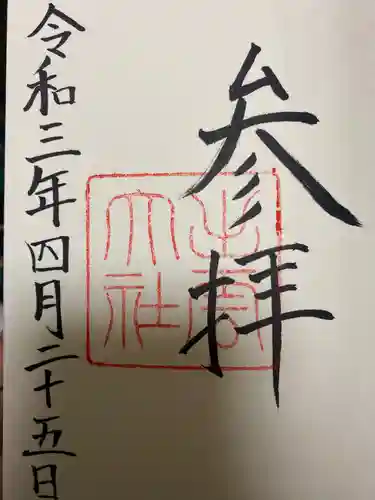 参拝
出雲
大社
令和三年四月二十五日